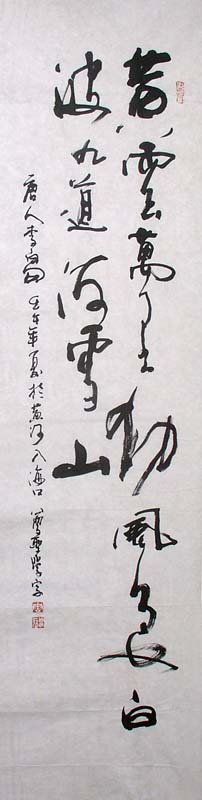 黄雲萬里動風色白
波九道流雪山
唐人李白句 壬午年夏於黄河入海口